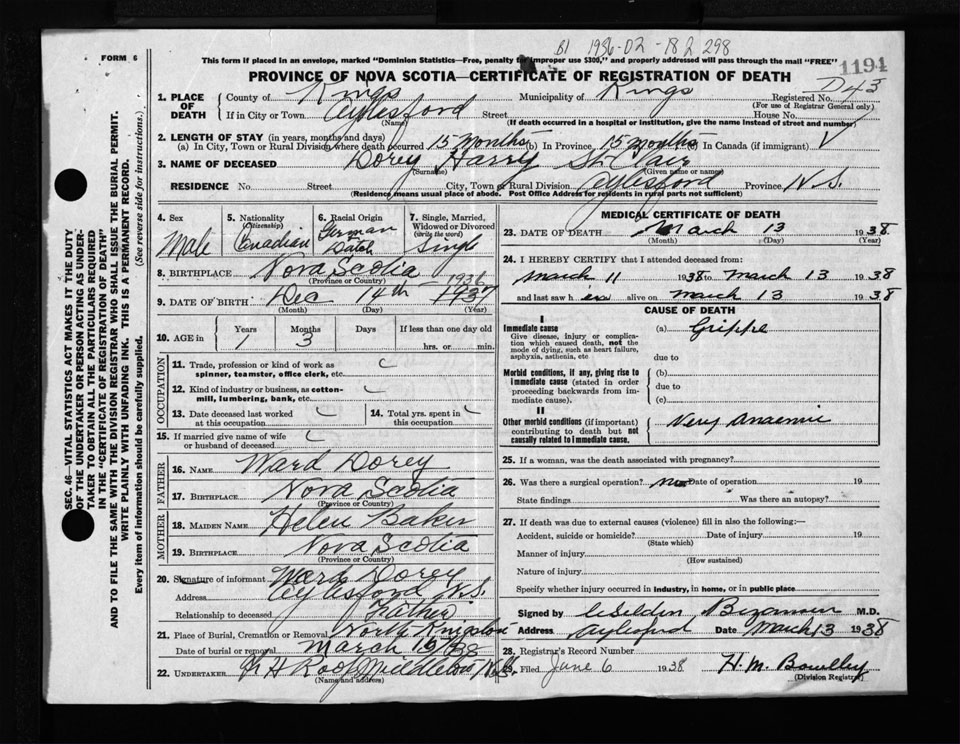 B1 1936-02-182298
This form if placed in an envelope, marked "Dominion Statistics—Free, penalty for improper use $300," and properly addressed will pass through the mail "FREE"
FORM 6
1194
PROVINCE OF NOVA SCOTIA—CERTIFICATE OF REGISTRATION OF DEATH
D43
1. PLACE OF DEATH
County of Kings Municipality of Kings Registered No.
(For use of Registrar General only)
If in City or Town Aylesford Street House No.
(Name) (If death occurred in a hospital or institution, give the name instead of street and number)
2. LENGTH OF STAY (in years, months and days)
(a) In City, Town or Rural Division where death occurred 15 months (b) In Province 15 months (c) In Canada (if immigrant)
3. NAME OF DECEASED Dorey Harry St Clair
(Surname) (Given name or names)
RESIDENCE No. Street City, Town or Rural Division Aylesford Province N.S.
(Residence means usual place of abode. Post Office Address for residents in rural parts not sufficient)
4. Sex Male
5. Nationality (Citizenship) Canadian
6. Racial Origin German Dutch
7. Single, Married, Widowed or Divorced (Write the word) Single
8. BIRTHPLACE Nova Scotia
(Province or Country)
1936
9. DATE OF BIRTH Dec 14th 1937
(Month) (Day) (Year)
10. AGE in Years Months Days If less than one day old
1 3 hrs. or min.
OCCUPATION
11. Trade, profession or kind of work as spinner, teamster, office clerk, etc.
12. Kind of industry or business, as cotton-mill, lumbering, bank, etc.
13. Date deceased last worked at this occupation
14. Total yrs. spent in this occupation
15. If married give name of wife or husband of deceased
FATHER
16. NAME Ward Dorey
17. BIRTHPLACE Nova Scotia
(Province or Country)
MOTHER
18. MAIDEN NAME Helen Baker
19. BIRTHPLACE Nova Scotia
(Province or Country)
20. Signature of informant Ward Dorey
Address Aylesford N.S.
Relationship to deceased Father
21. Place of Burial, Cremation or Removal North Kingston
Date of burial or removal March 15/38
22. UNDERTAKER H Roop Middleton N.S.
(Name and address)
MEDICAL CERTIFICATE OF DEATH
23. DATE OF DEATH March 13 1938
(Month) (Day) (Year)
24. I HEREBY CERTIFY that I attended deceased from:
March 11 1938 to March 13 1938
and last saw h im alive on March 13 1938
CAUSE OF DEATH
I
Immediate cause (a) Grippe
Give disease, injury or complication which caused death, not the mode of dying, such as heart failure, asphyxia, asthenia, etc
due to
Morbid conditions, if any, giving rise to immediate cause (stated in order proceeding backwards from immediate cause).
(b)
due to
(c)
II
Other morbid conditions (if important) contributing to death but not causally related to immediate cause.
Very anaemic
25. If a woman, was the death associated with pregnancy?
26. Was there a surgical operation? no Date of operation 19
State findings Was there an autopsy?
27. If death was due to external causes (violence) fill in also the following:—
Accident, suicide or homicide? Date of injury 19
(State which)
Manner of injury
(How sustained)
Nature of injury
Specify whether injury occurred in industry, in home, or in public place
Signed by M.D.
Address Aylesford Date March 13 1938
28. Registrar's Record Number
29. Filed June 6 1938 H. M.
(Division Registrar)
SEC. 46—VITAL STATISTICS ACT MAKES IT THE DUTY
OF THE UNDERTAKER OR PERSON ACTING AS UNDER-
TAKER TO OBTAIN ALL THE PARTICULARS REQUIRED
IN THE "CERTIFICATE OF REGISTRATION OF DEATH"
AND TO FILE THE SAME WITH THE DIVISION REGISTRAR WHO SHALL ISSUE THE BURIAL PERMIT.
WRITE PLAINLY WITH UNFADING INK. THIS IS A PERMANENT RECORD.
Every item of information should be carefully supplied. (See reverse side for instructions.)